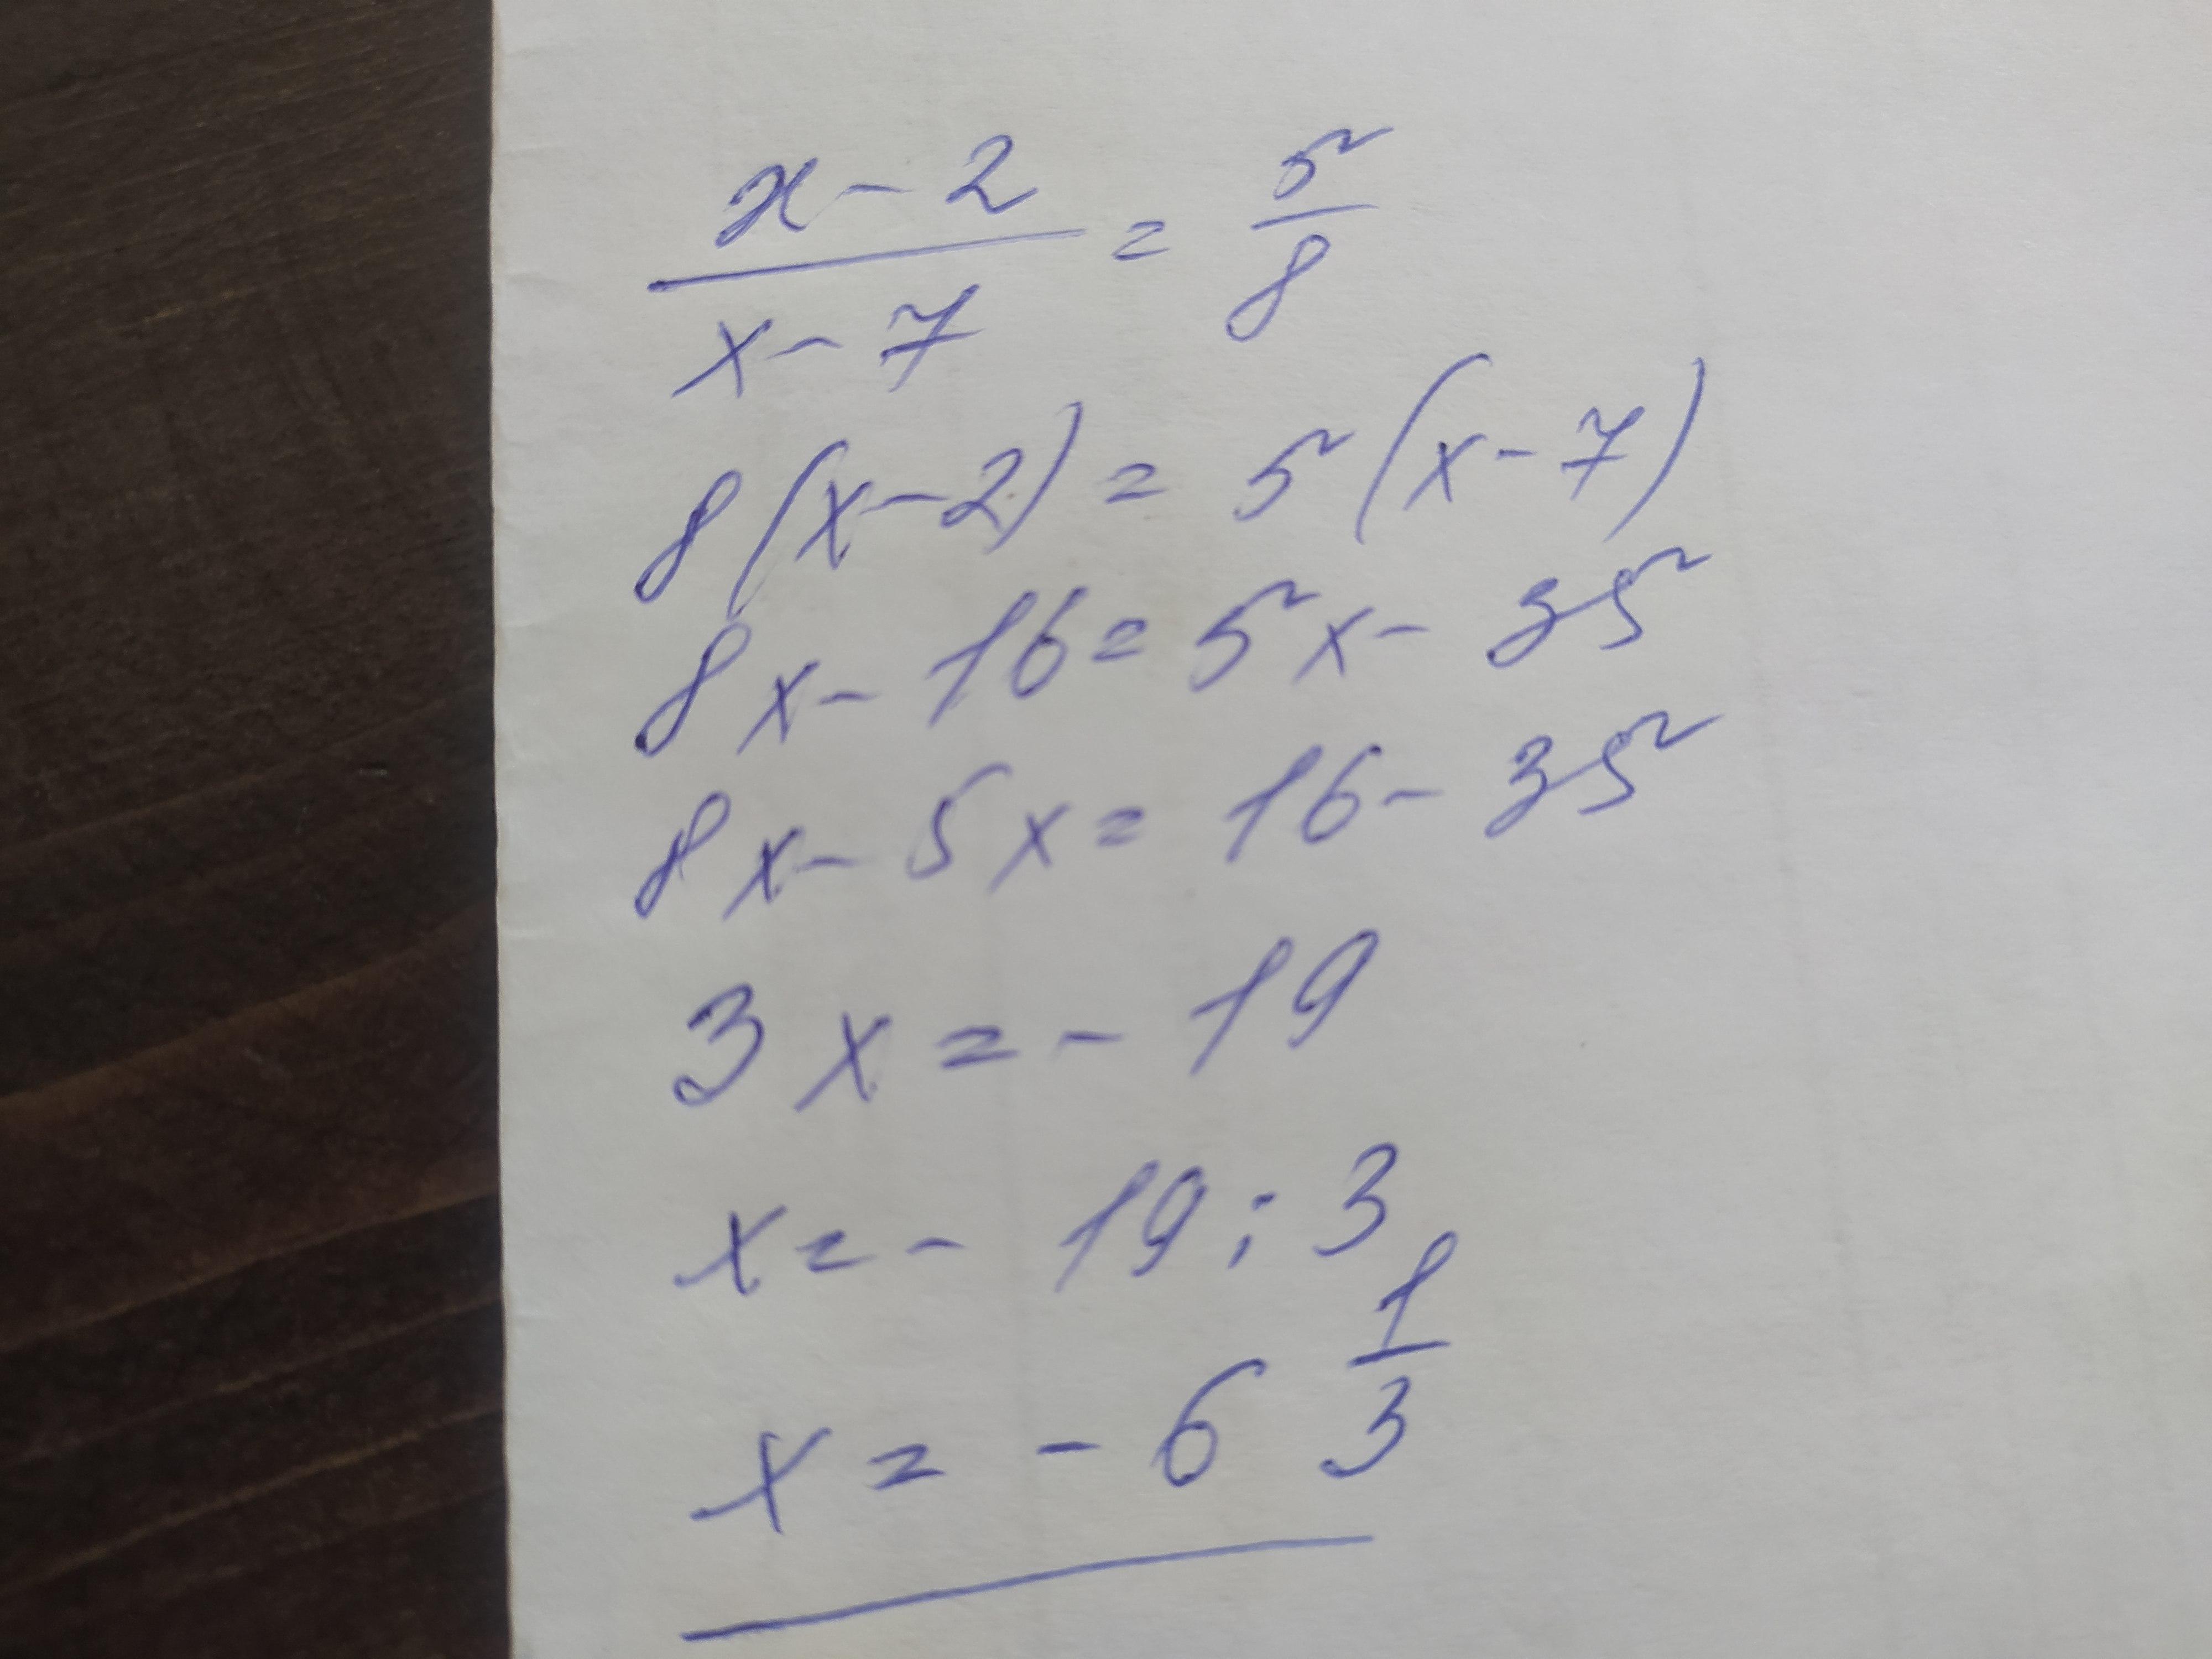 x-2/x-7 = 5/8
8(x-2) = 5(x-7)
8x-16=5x-35
8x-5x=16-35
3x=-19
x=-19:3
x=-6 1/3